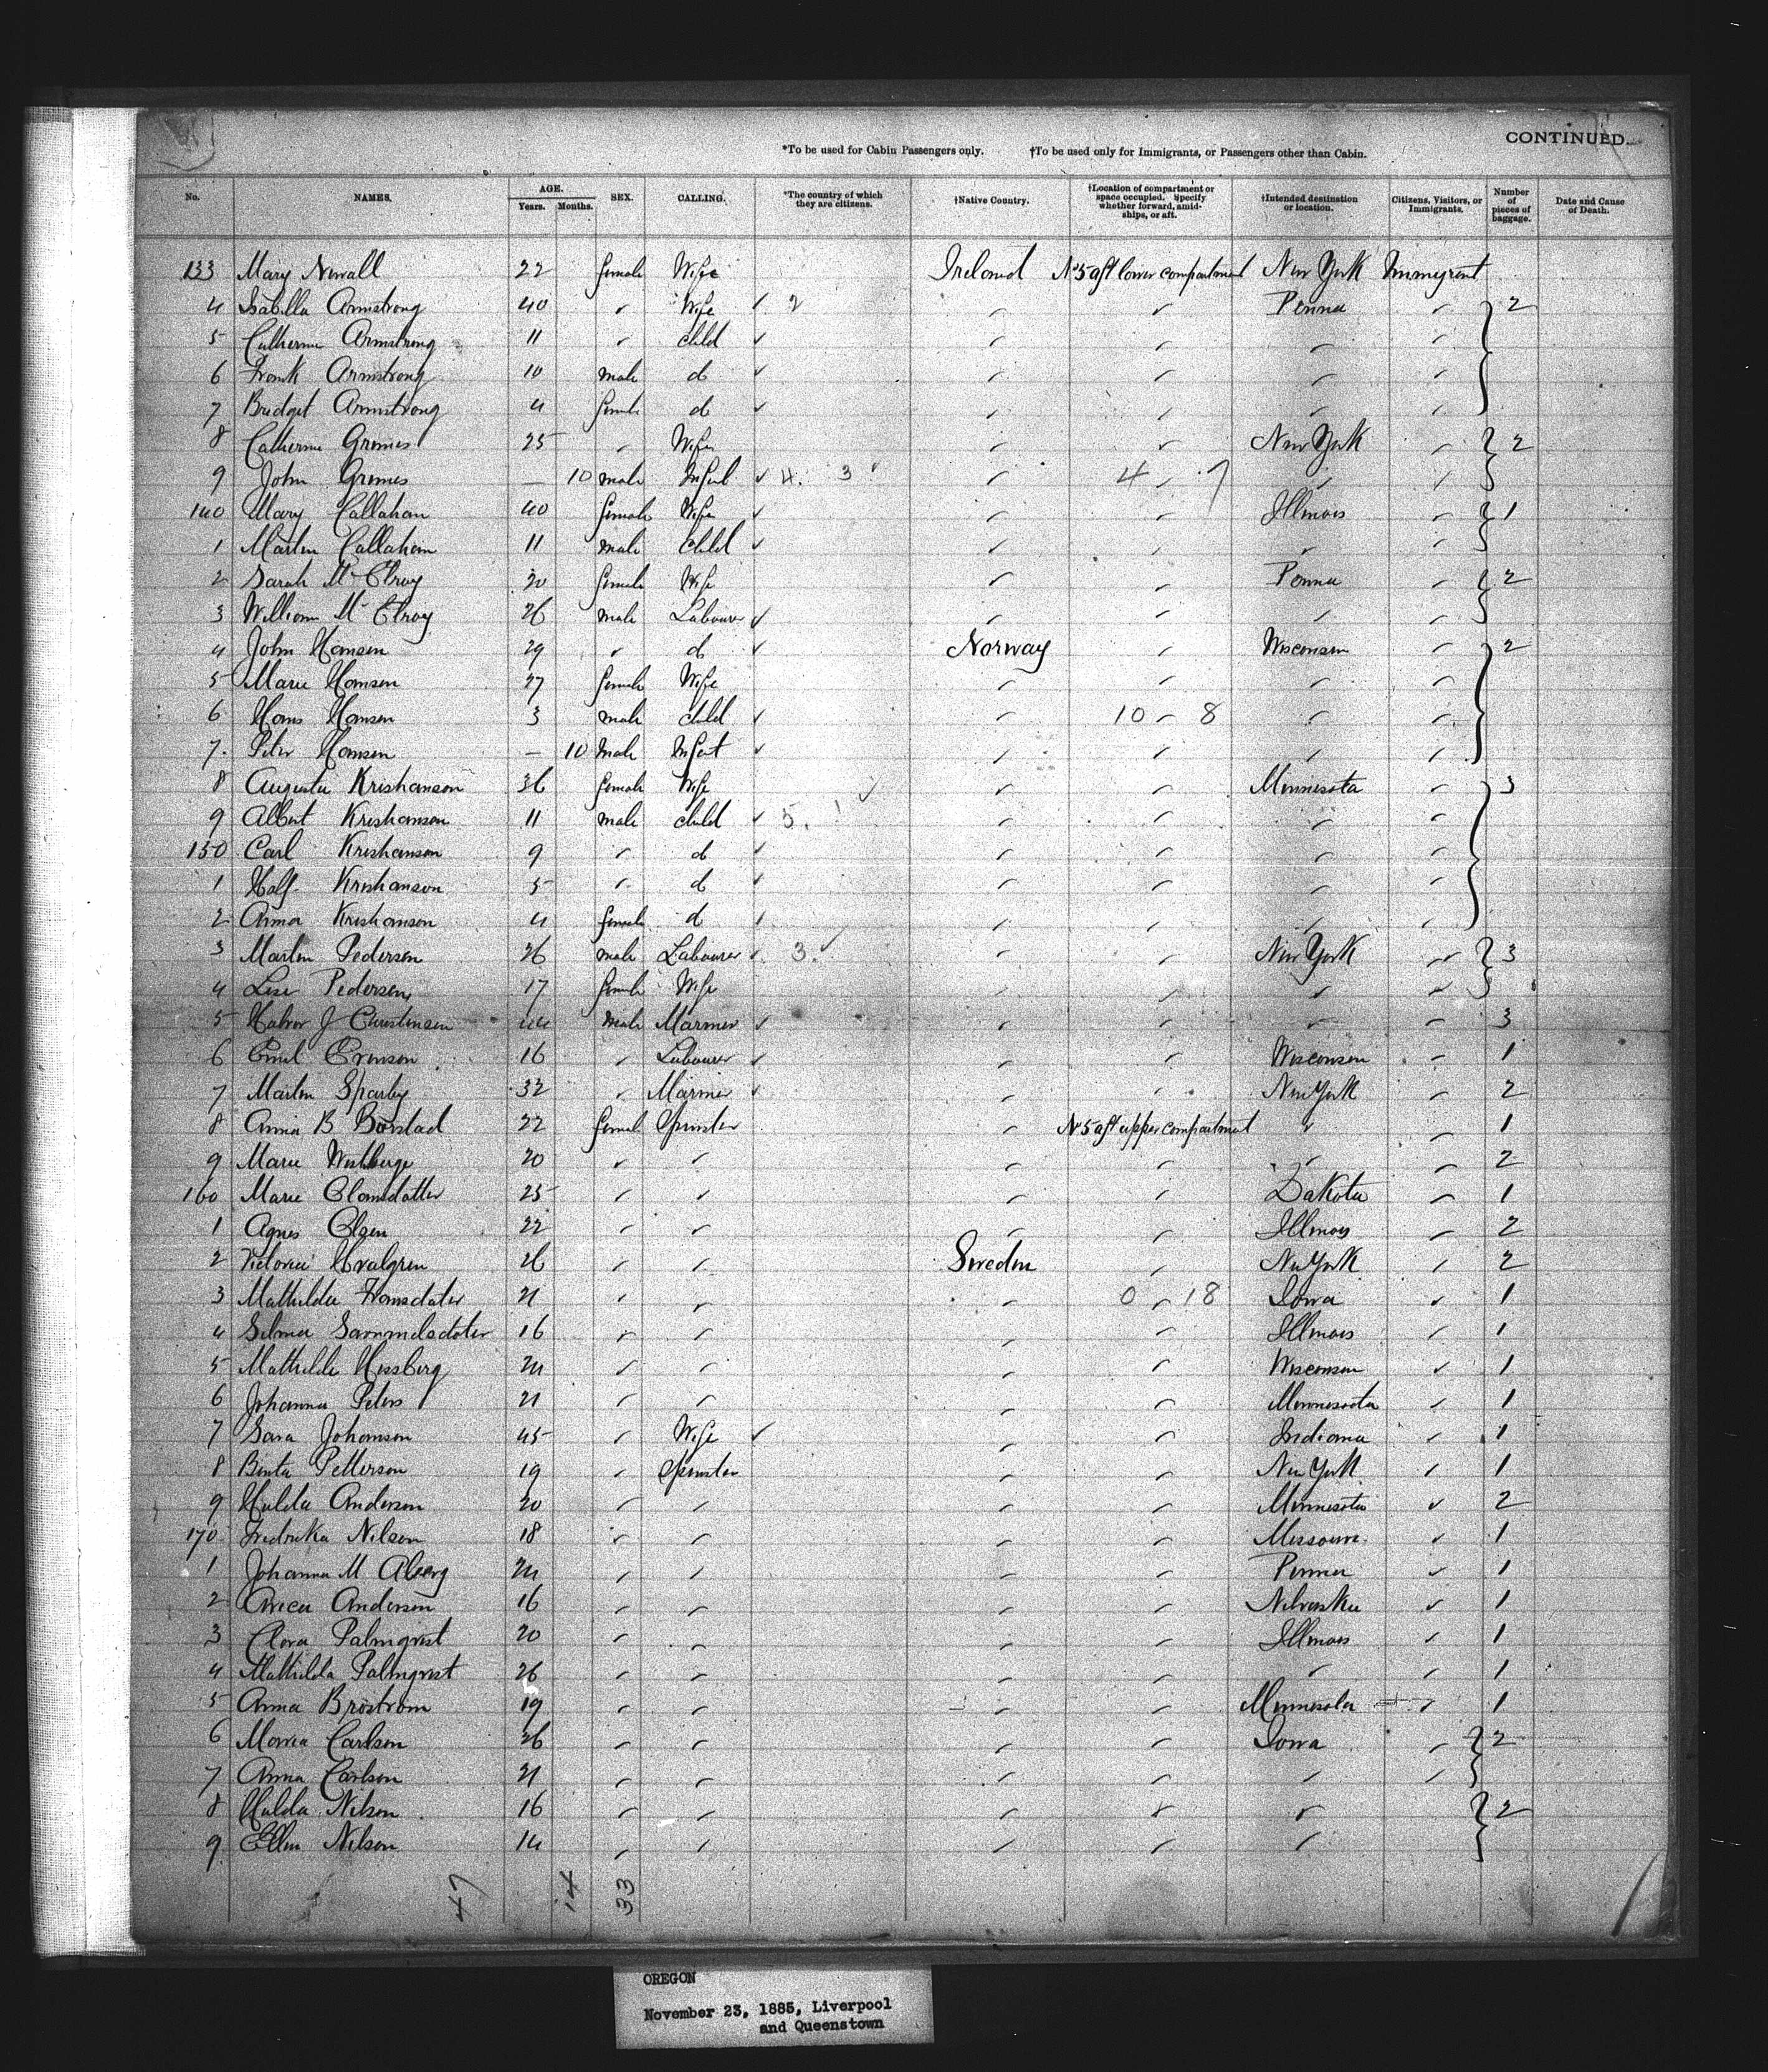 CONTINUED.
*To be used for Cabin Passengers only. †To be used only for Immigrants, or Passengers other than Cabin.
No. NAMES. AGE. Years. Months. SEX. CALLING. *The country of which they are citizens. †Native Country. †Location of compartment or space occupied. Specify whether forward, amidships, or aft. †Intended destination or location. Citizens, Visitors, or Immigrants. Number of pieces of baggage. Date and Cause of Death.
133 Mary Newall 22 female Wife Ireland No 5 aft lower compartment New York Immigrant
4 Isabella Armstrong 40 " Wife 2 " " Penna " 2
5 Catherine Armstrong 11 " child " " " "
6 Frank Armstrong 10 male do " " " "
7 Bridget Armstrong 4 female do " " " "
8 Catherine Grimes 25 " Wife " " New York " 2
9 John Grimes — 10 male Infant 4. 3 " 4 " 7 " "
140 Mary Callahan 40 female Wife " " Illinois " 1
1 Martin Callahan 11 male child " " " "
2 Sarah McElroy 20 female Wife " " Penna " 2
3 William McElroy 26 male Labourer " " " "
4 John Hansen 29 " do Norway " Wisconsin " 2
5 Marie Hansen 27 female Wife " " " "
6 Hans Hansen 3 male child " 10 " 8 " "
7 Peter Hansen — 10 male Infant " " " "
8 Augusta Kristianson 36 female Wife " " Minnesota " 3
9 Albert Kristianson 11 male child 5. " " " "
150 Carl Kristianson 9 " do " " " "
1 Kristianson 5 " do " " " "
2 Anna Kristianson 4 female do " " " "
3 Martin Pedersen 26 male Labourer 3. " " New York " 3
4 Lise Pedersen 17 female Wife " " " "
5 Halvor J Christensen 44 male Mariner " " " " 3
6 Emil 16 " Labourer " " Wisconsin " 1
7 Martin Sparby 32 " Mariner " " New York " 2
8 Anna B Borstad 22 female Spinster " No 5 aft upper compartment " " 1
9 Marie 20 " " " " " " 2
160 Marie 25 " " " " Dakota " 1
1 Agnes Olsen 22 " " " " Illinois " 2
2 Victoria 26 " " Sweden " New York " 2
3 Mathilda 21 " " " 0 " 18 Iowa " 1
4 Selma Sammelsdoter 16 " " " " Illinois " 1
5 Mathilda Hessberg 24 " " " " Wisconsin " 1
6 Johanna Peters 21 " " " " Minnesota " 1
7 Sara Johanson 45 " Wife " " Indiana " 1
8 Petterson 19 " Spinster " " New York " 1
9 Hulda Anderson 20 " " " " Minnesota " 2
170 Fredrika Nilson 18 " " " " Missouri " 1
1 Johanna M 24 " " " " Penna " 1
2 Anderson 16 " " " " Nebraska " 1
3 Clara Palmqvist 20 " " " " Illinois " 1
4 Mathilda Palmqvist 26 " " " " " " 1
5 Anna Broström 19 " " " " Minnesota " 1
6 Maria Carlson 26 " " " " Iowa " 2
7 Anna Carlson 21 " " " " " "
8 Hulda Nilson 16 " " " " " 2
9 Ellen Nilson 14 " " " " "
47 14 33
OREGON
November 23, 1885, Liverpool
and Queenstown